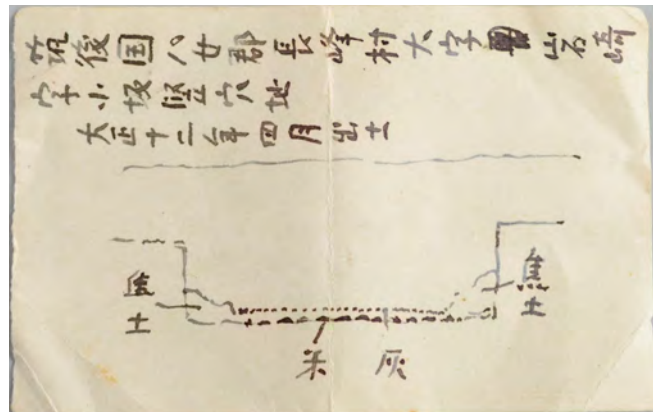 筑後国八女郡長峰村大字岩崎
字小坂竪穴址
大正十二年四月出土
黒土
黒土
米 灰